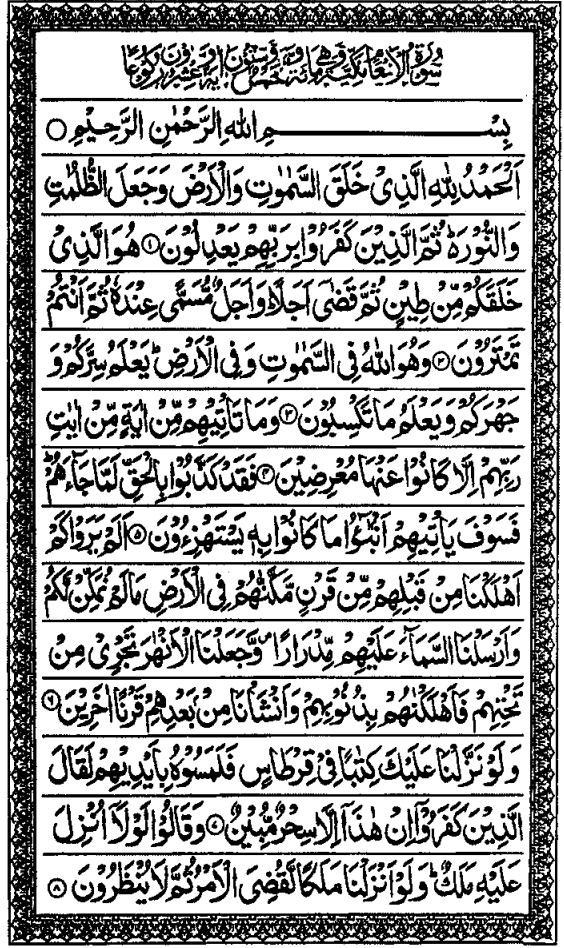 سُوْرَةُ الْاَنْعَامِ مَكِّيَّةٌ وَّهِيَ مِائَةٌ وَّخَمْسٌ وَّسِتُّوْنَ اٰيَةً وَّعِشْرُوْنَ رُكُوْعًا
بِسْمِ اللّٰهِ الرَّحْمٰنِ الرَّحِيْمِ ۝
اَلْحَمْدُ لِلّٰهِ الَّذِيْ خَلَقَ السَّمٰوٰتِ وَالْاَرْضَ وَجَعَلَ الظُّلُمٰتِ
وَالنُّوْرَ ؕ ثُمَّ الَّذِيْنَ كَفَرُوْا بِرَبِّهِمْ يَعْدِلُوْنَ ۝۱ هُوَ الَّذِيْ
خَلَقَكُمْ مِّنْ طِيْنٍ ثُمَّ قَضٰۤى اَجَلًا ؕ وَاَجَلٌ مُّسَمًّى عِنْدَهٗ ثُمَّ اَنْتُمْ
تَمْتَرُوْنَ ۝۲ وَهُوَ اللّٰهُ فِي السَّمٰوٰتِ وَفِي الْاَرْضِ ؕ يَعْلَمُ سِرَّكُمْ وَ
جَهْرَكُمْ وَيَعْلَمُ مَا تَكْسِبُوْنَ ۝۳ وَمَا تَاْتِيْهِمْ مِّنْ اٰيَةٍ مِّنْ اٰيٰتِ
رَبِّهِمْ اِلَّا كَانُوْا عَنْهَا مُعْرِضِيْنَ ۝۴ فَقَدْ كَذَّبُوْا بِالْحَقِّ لَمَّا جَآءَهُمْ ؕ
فَسَوْفَ يَاْتِيْهِمْ اَنْۢبٰٓؤُا مَا كَانُوْا بِهٖ يَسْتَهْزِءُوْنَ ۝۵ اَلَمْ يَرَوْا كَمْ
اَهْلَكْنَا مِنْ قَبْلِهِمْ مِّنْ قَرْنٍ مَّكَّنّٰهُمْ فِي الْاَرْضِ مَا لَمْ نُمَكِّنْ لَّكُمْ
وَاَرْسَلْنَا السَّمَآءَ عَلَيْهِمْ مِّدْرَارًا ۪ وَّجَعَلْنَا الْاَنْهٰرَ تَجْرِيْ مِنْ
تَحْتِهِمْ فَاَهْلَكْنٰهُمْ بِذُنُوْبِهِمْ وَاَنْشَاْنَا مِنْۢ بَعْدِهِمْ قَرْنًا اٰخَرِيْنَ ۝۶
وَلَوْ نَزَّلْنَا عَلَيْكَ كِتٰبًا فِيْ قِرْطَاسٍ فَلَمَسُوْهُ بِاَيْدِيْهِمْ لَقَالَ
الَّذِيْنَ كَفَرُوْۤا اِنْ هٰذَاۤ اِلَّا سِحْرٌ مُّبِيْنٌ ۝۷ وَقَالُوْا لَوْلَاۤ اُنْزِلَ
عَلَيْهِ مَلَكٌ ؕ وَلَوْ اَنْزَلْنَا مَلَكًا لَّقُضِيَ الْاَمْرُ ثُمَّ لَا يُنْظَرُوْنَ ۝۸